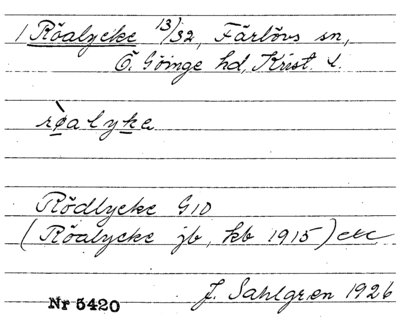 1 Röalycke 13/32, Färlövs sn,
Ö. Göinge hd, Krist. l.
rø̀alyka
Rödlycke G10
(Röalycke jb, kb 1915) etc
J. Sahlgren 1926
Nr 5420